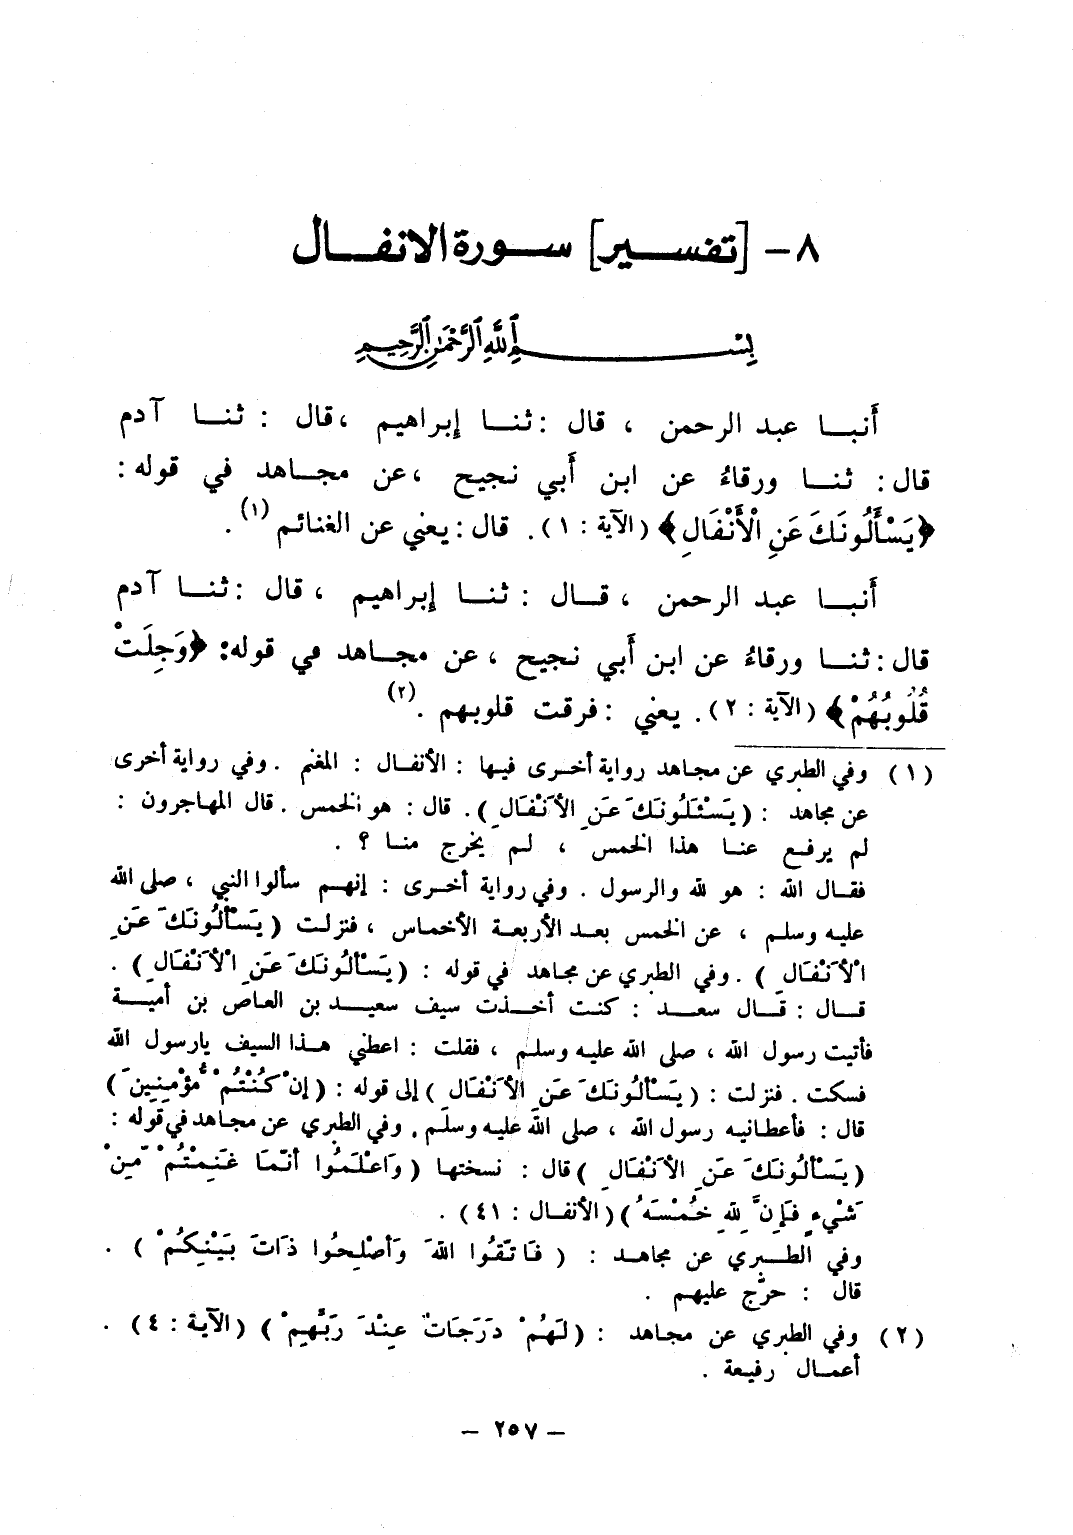 ٨ - [تفسير] سورة الانفال
بِسْمِ اللَّهِ الرَّحْمَٰنِ الرَّحِيمِ
أَنبا عبد الرحمن ، قال : ثنا إبراهيم ، قال : ثنا آدم
قال : ثنا ورقاءُ عن ابن أَبي نجيح ، عن مجاهد في قوله :
﴿يَسْأَلُونَكَ عَنِ الْأَنْفَالِ﴾ (الآية : ١) . قال : يعني عن الغنائم (١) .
أَنبا عبد الرحمن ، قال : ثنا إبراهيم ، قال : ثنا آدم
قال : ثنا ورقاءُ عن ابن أَبي نجيح ، عن مجاهد في قوله: ﴿وَجِلَتْ
قُلُوبُهُمْ﴾ (الآية : ٢) . يعني : فرقت قلوبهم . (٢)
(١) وفي الطبري عن مجاهد رواية أخرى فيها : الأنفال : المغنم . وفي رواية أخرى
عن مجاهد : (يَسْئَلُونَكَ عَنِ الأَنْفَالِ) . قال : هو الخمس . قال المهاجرون :
لم يرفع عنا هذا الخمس ، لم يخرج منا ؟ .
فقال الله : هو لله والرسول . وفي رواية أخرى : إنهم سألوا النبي ، صلى الله
عليه وسلم ، عن الخمس بعد الأربعة الأخماس ، فنزلت (يَسْأَلُونَكَ عَنِ
الْأَنْفَالِ) . وفي الطبري عن مجاهد في قوله : (يَسْأَلُونَكَ عَنِ الْأَنْفَالِ) .
قال : قال سعد : كنت أخذت سيف سعيد بن العاص بن أمية
فأتيت رسول الله ، صلى الله عليه وسلم ، فقلت : اعطني هذا السيف يارسول الله
فسكت . فنزلت : (يَسْأَلُونَكَ عَنِ الأَنْفَالِ) إلى قوله : (إنْ كُنْتُمْ مُؤْمِنِينَ)
قال : فأعطانيه رسول الله ، صلى الله عليه وسلم . وفي الطبري عن مجاهد في قوله :
(يَسْأَلُونَكَ عَنِ الأَنْفَالِ) قال : نسختها (وَاعْلَمُوا أنَّمَا غَنِمْتُمْ مِنْ
شَيْءٍ فَإِنَّ لِلَّهِ خُمْسَهُ) (الأنفال : ٤١) .
وفي الطبري عن مجاهد : (فَاتَّقُوا اللهَ وَأَصْلِحُوا ذَاتَ بَيْنِكُمْ) .
قال : حرّج عليهم .
(٢) وفي الطبري عن مجاهد : (لَهُمْ دَرَجَاتٌ عِنْدَ رَبِّهِمْ) (الآية : ٤) .
أعمال رفيعة .
- ٢٥٧ -